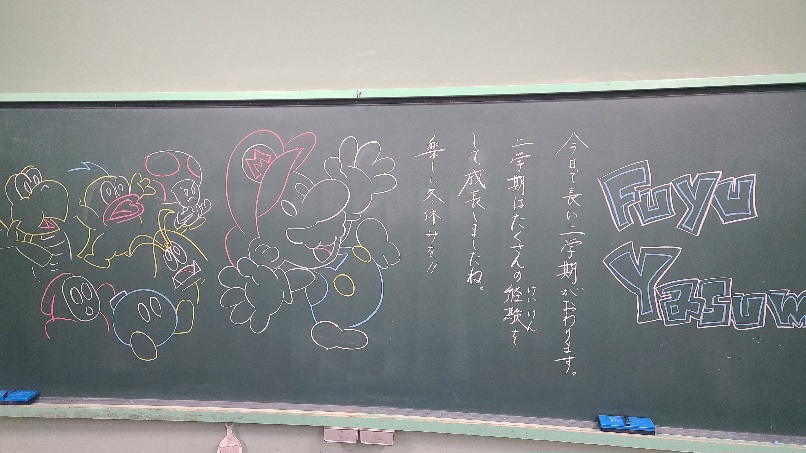 Fuyu
Yasum
今日で長い二学期がおわります。
二学期はたくさんの経験を
けいけん
して成長しましたね。
楽しい冬休みを!!
M